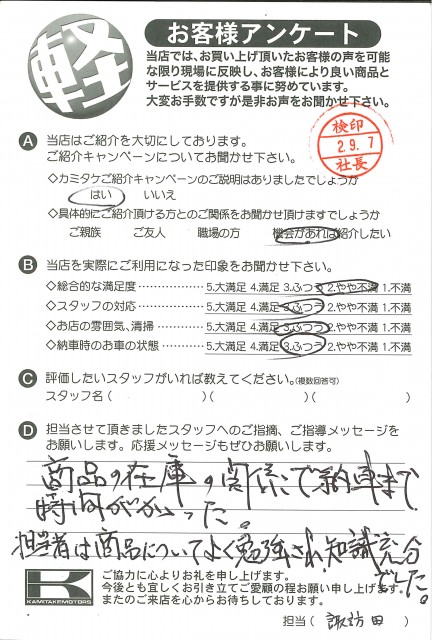 軽
お客様アンケート
当店では、お買い上げ頂いたお客様の声を可能
な限り現場に反映し、お客様により良い商品と
サービスを提供する事に努めています。
大変お手数ですが是非お声をお聞かせ下さい。
検印
29.7
社長
A 当店はご紹介を大切にしております。
ご紹介キャンペーンについてお聞かせ下さい。
◇カミタケご紹介キャンペーンのご説明はありましたでしょうか
はい いいえ
◇具体的にご紹介頂ける方とのご関係をお聞かせ頂けますでしょうか
ご親族 ご友人 職場の方 機会があれば紹介したい
B 当店を実際にご利用になった印象をお聞かせ下さい。
◇総合的な満足度 ················ 5.大満足 4.満足 3.ふつう 2.やや不満 1.不満
◇スタッフの対応 ················ 5.大満足 4.満足 3.ふつう 2.やや不満 1.不満
◇お店の雰囲気、清掃 ············ 5.大満足 4.満足 3.ふつう 2.やや不満 1.不満
◇納車時のお車の状態 ············ 5.大満足 4.満足 3.ふつう 2.やや不満 1.不満
C 評価したいスタッフがいれば教えてください。(複数回答可)
スタッフ名( )( )( )
D 担当させて頂きましたスタッフへのご指摘、ご指導メッセージを
お願いします。応援メッセージもぜひお願いします。
商品の在庫の関係で納車まで
時間がかかった。
担当者は商品についてよく勉強され知識充分
でした。
K
KAMITAKEMOTORS
ご協力に心よりお礼を申し上げます。
今後とも宜しくお引き立てご愛顧の程お願い申し上げます。
またのご来店を心からお待ちしております。
担当( 諏訪田 )